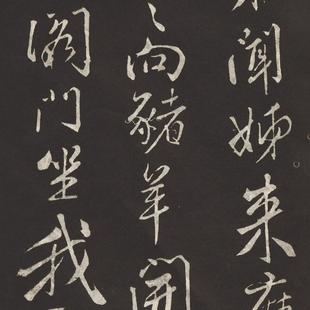 聞姊来
向豬羊開
閣門坐我